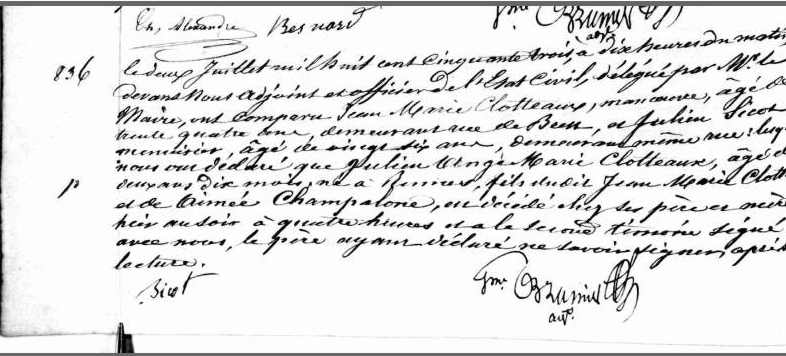 Ch. Alexandre Besnard
836
le deux Juillet mil huit cent cinquante trois, à dix heures du matin
devant Nous adjoint et officier de l'Etat Civil, délégué par Mr. le
Maire, ont comparu Jean Marie Clotteaux, manœuvre, âgé de
trente quatre ans, demeurant rue de Brest, et Julien Sicot
menuisier, âgé de vingt six ans, demeurant même rue: lesq
nous ont déclaré que Julien Ange Marie Clotteaux, âgé d
deux ans dix mois, né à Rennes, fils dudit Jean Marie Clott
et de Aimée Champalone, est décédé chez ses père et mère
hier au soir à quatre heures et a le second témoin signé
avec nous, le père ayant déclaré ne savoir signer, après
lecture.
Sicot
adjt.